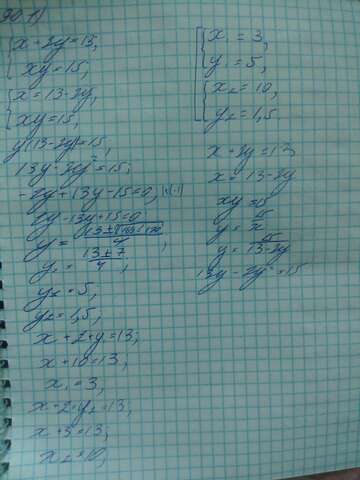 90 1)
{x+2y=13,
xy=15,
{x=13-2y,
xy=15,
y(13-2y)=15,
13y-2y²=15;
-2y²+13y-15=0, |·(-1)
2y²-13y+15=0;
y = 13±√169-120 / 4 ;
y₁ = 13±7 / 4 ;
y₁=5;
y₂=1,5;
x+2·y=13;
x+10=13;
x₁=3;
x+2·y₂=13;
x+3=13;
x₂=10,
{x₁=3,
y₁=5,
{x₂=10,
y₂=1,5.
x+2y=13
x=13-2y
xy=15
y=15/x
y=15/13-2y
13y-2y²=15